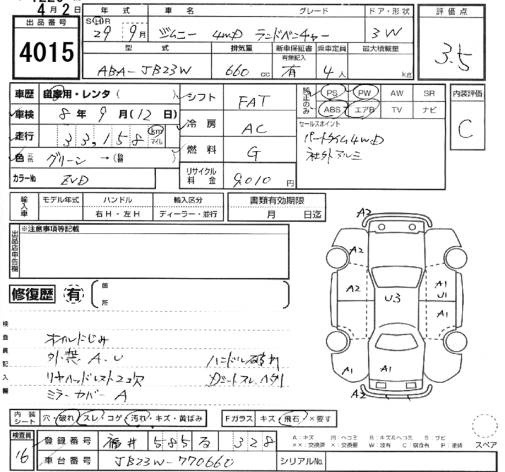 4月2日
出品番号
4015
年式 車名 グレード ドア・形状 評価点
S H R 29年 9月 ジムニー 4WD ランドベンチャー 3W 3.5
型式 排気量 新車保証書 乗車定員 最大積載量
有無記入
ABA-JB23W 660 cc 有 4人 kg
車歴 自家用・レンタ( ) シフト FAT 純正のみ PS PW AW SR 内装評価
ABS エアB TV ナビ C
車検 8年9月(12日) 冷房 AC セールスポイント
走行 33,158 km マイル パートタイム4WD
社外アルミ
色 グリーン→( ) 燃料 G
カラーNo ZVD リサイクル料金 9,010円
輸入車 モデル年式 ハンドル 輸入区分 書類有効期限
右H・左H ディーラー・並行 月 日迄
出品店申告欄 ※注意事項等記載
修復歴 有 箇所
検査員記入欄
オイルにじみ
外装A.U ハンドル破れ
リヤヘッドレスト2コ欠
ミラーカバーA
A2
A2 A1
U3 U1
A2 A1
A2
内装シート 穴・破れ・スレ・コゲ・汚れ・キズ・黄ばみ Fガラス キズ・飛石・×要す
スペア
検査員 16 登録番号 福井 585 る 328
A:キズ
車台番号 JB23W-770660 シリアルNo.